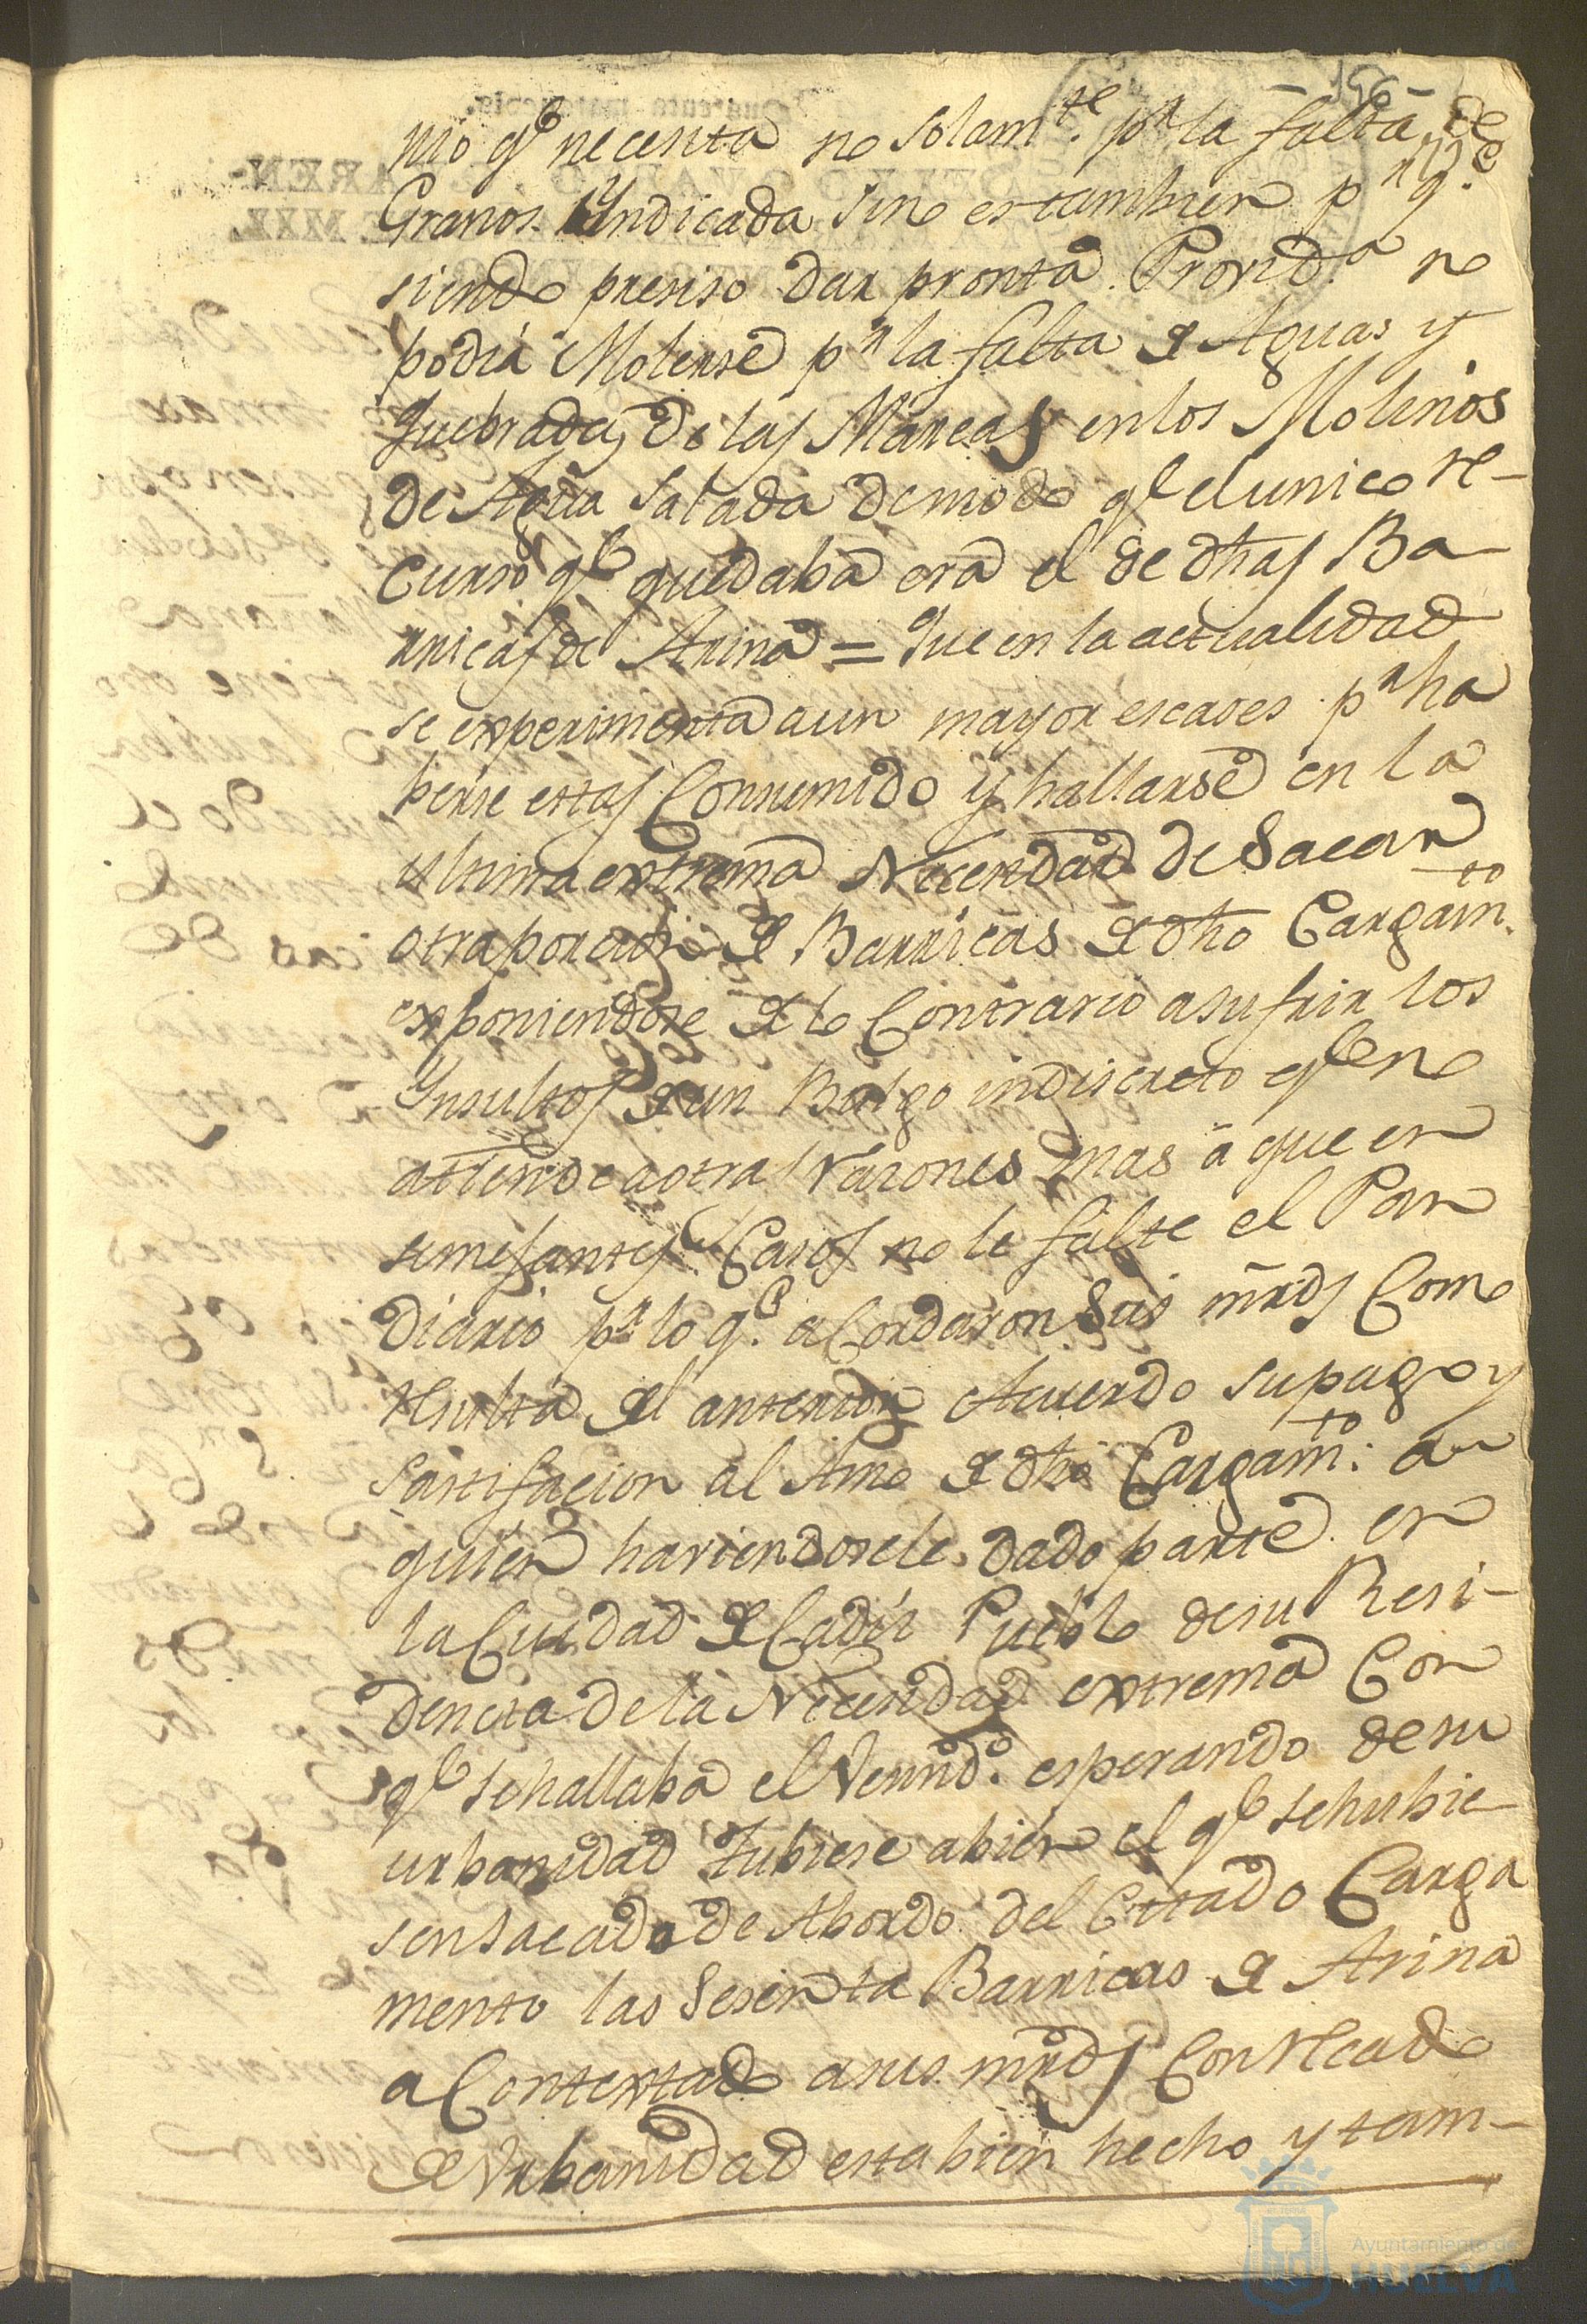 156
nio qe necesita no Solamte. pr la falta de
Granos Yndicada sino es tambien pr qe.
siendo presiso dar pronta Provida. no
podia Molerse pr la falta de Aguas y
quebradas de las Mareas en los Molinos
de Agua Salada demodo qe el unico re-
curso qe quedaba era el de dhas Ba-
rricas de Arina = Que en la actualidad
se experimenta aun mayor escases pr ha
berse estas Consumido y hallarse en la
ultima extrema Necesidad de Sacar
otra porcion de Barricas de dho Cargamto.
exponiendose de lo Contrario a sufrir los
Ynsultos de un Bulgo indiscreto qe no
atiende a otras Razones mas a que en
semejantes Casos no le falte el Pan
Diario pr lo qe. acordaron Sus mrds Como
resulta del anterior Acuerdo su pago y
Satisfacion al Amo de dho Cargamto: a
quien haviendosele dado parte en
la Ciudad de Cadiz Pueblo de su Resi-
dencia de la Necesidad extrema Con
qe se hallaba el Vecindo. esperando de su
urbanidad tubiese abien el qe se hubie
sen sacado de Abordo del Citado Carga
mento las Sesenta Barricas de Arina
a Contextado a sus mrds Con recado
de Urbanidad esta bien hecho y tam-
Ayuntamiento de
HUELVA